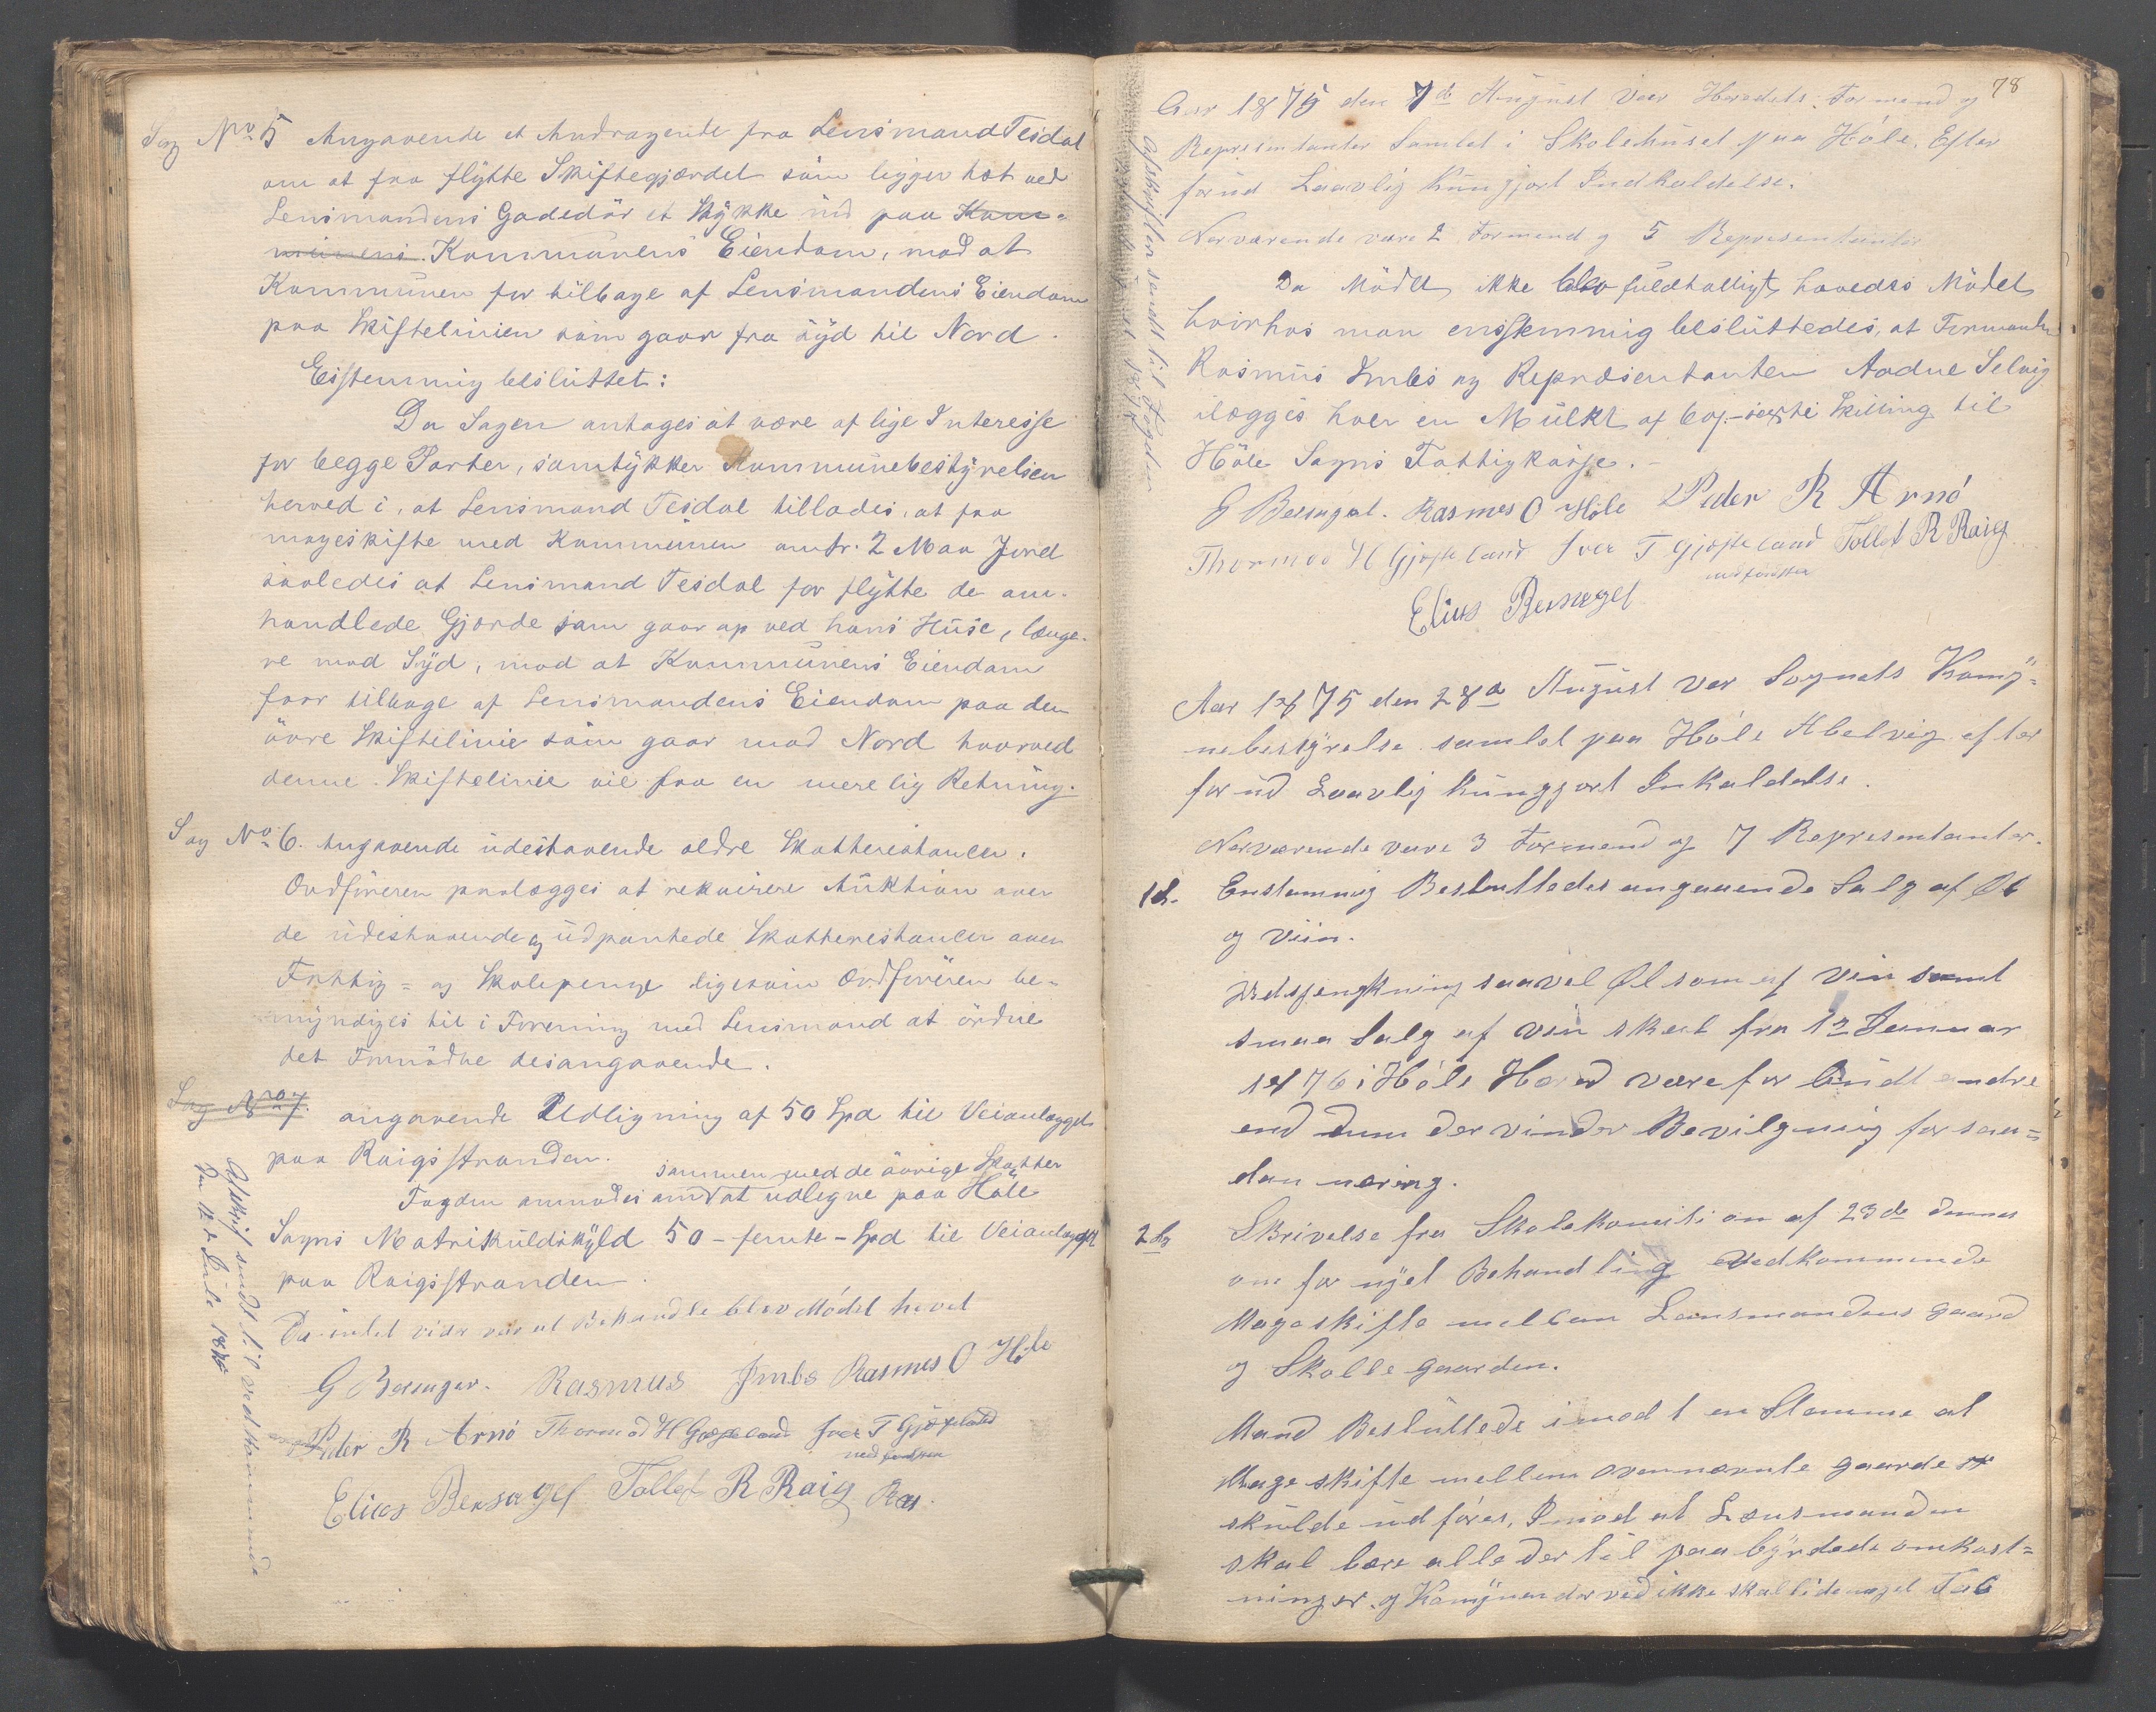 Sag No 5 Angaaende et Andragende fra Lensmand Tesdal
om at faa flytte Skiftegjærdet som ligger tæt ved
Lensmandens Gadedör et Stykke ind paa Kom-
munens Kommunens Eiendom, mod at
Kommunen før tilbage af Lensmandens Eiendom
paa Skiftelinien som gaar fra Syd til Nord.
Eistemmig besluttet:
Da Sagen antages at være af lige Interesse
for begge Parter, samtykker Kommunebestyrelsen
herved i, at Lensmand Tesdal tillades, at faa
mageskifte med Kommunen omtr. 2 Maa Jord
saaledes at Lensmand Tesdal faar flytte de om-
handlede Gjærde som gaar op ved hans Huse, længe-
re mod Syd, mod at Kommunens Eiendom
faar tilbage af Lensmandens Eiendom paa den
övre Skiftelinie som gaar mod Nord hvorved
denne Skiftelinie vil faa en mere lig Retning.
Sag No 6. Angaaende udestaaende ældre Skatterestancer.
Ordföreren paalægges at rekvirere Auktion over
de udestaaende og udpantede Skatterestancer over
Fattig= og Skolepenge ligesom Ordföreren be-
myndiges til i Forening med Lensmand at ordne
det Fornödne desangaaende.
Sag No 7. angaaende Udligning af 50 Spd til Veianlægget
paa Raigsstranden.
sammen med de övrige Skatter
Fogden anmodes om at udligne paa Höle
Sogns Matrikulskyld 50 - femte - Spd til Veianlægget
paa Raigsstranden.
Da intet vider var at Behandle blev Mödet hævet
G Bersagel. Rasmus Imbs Rasmes O Höle
Peder R Arnö Thormod H Gjøseland Iver T Gjøseland
med paaholden
Elias Bersagel Tollef R Raig Ras.
Afskrif sendt til vedkommende
den 12te Juli 1875
78
Aar 1875 den 7de August var Heredets Formend og
Representanter Samlet i Skolehuset paa Höle, Efter
forud Laavlig Kungjort Indkaldelse.
Nerværende vare 2 Formend og 5 Representanter
Da Mödet ikke blev fuldtalligt, hævedes Mödet
hvorhos man enstemmig besluttedes, at Formanden
Rasmus Imbs og Repræsentanten Aadne Selvig
ilægges hver en Mulkt af 60/- sexti Skilling til
Höle Sogns Fattigkasse.-
G Bersagel. Rasmes O Höle Peder R Arnö
Thormod H Gjøseland Iver T Gjøseland Tollef R Raig
Elius Bersagel
Afskrifter sendt til Fogden
Aar 1875 den 28de August var Sognets Komý=
nebestyrelse samlet paa Höle Abelvig efter
forud Laavlig kungjort Inkaldelse.
Nerværende vare 3 Formend og 7 Representanter.
1ste. Enstemmig Besluttedes angaaende Salg af Øl
og Viin.
Udsjenkning saavel Øl som af Vin samt
smaa Salg af vin skeet fra 1ste Januar
1876 i Höle Hered være for budt andre
end dem der vinder Bevilgning for saa=
dan nering.
2de Skrivelse fra Skolekomision af 23de dennes
om for nyet Behandling vedkommende
Mageskifte mellem Lensmandens gaard
og Skolle gaarden.
Mand Besluttede imod 1 en Stemme at
Mage skifte mellem ovennævnte gaarder
skulde udföres, Imod at Lænsmanden
skal bære alle der til paa byrdede omkost=
ninger, og Komynen der ved ikke skal lide noget Tab